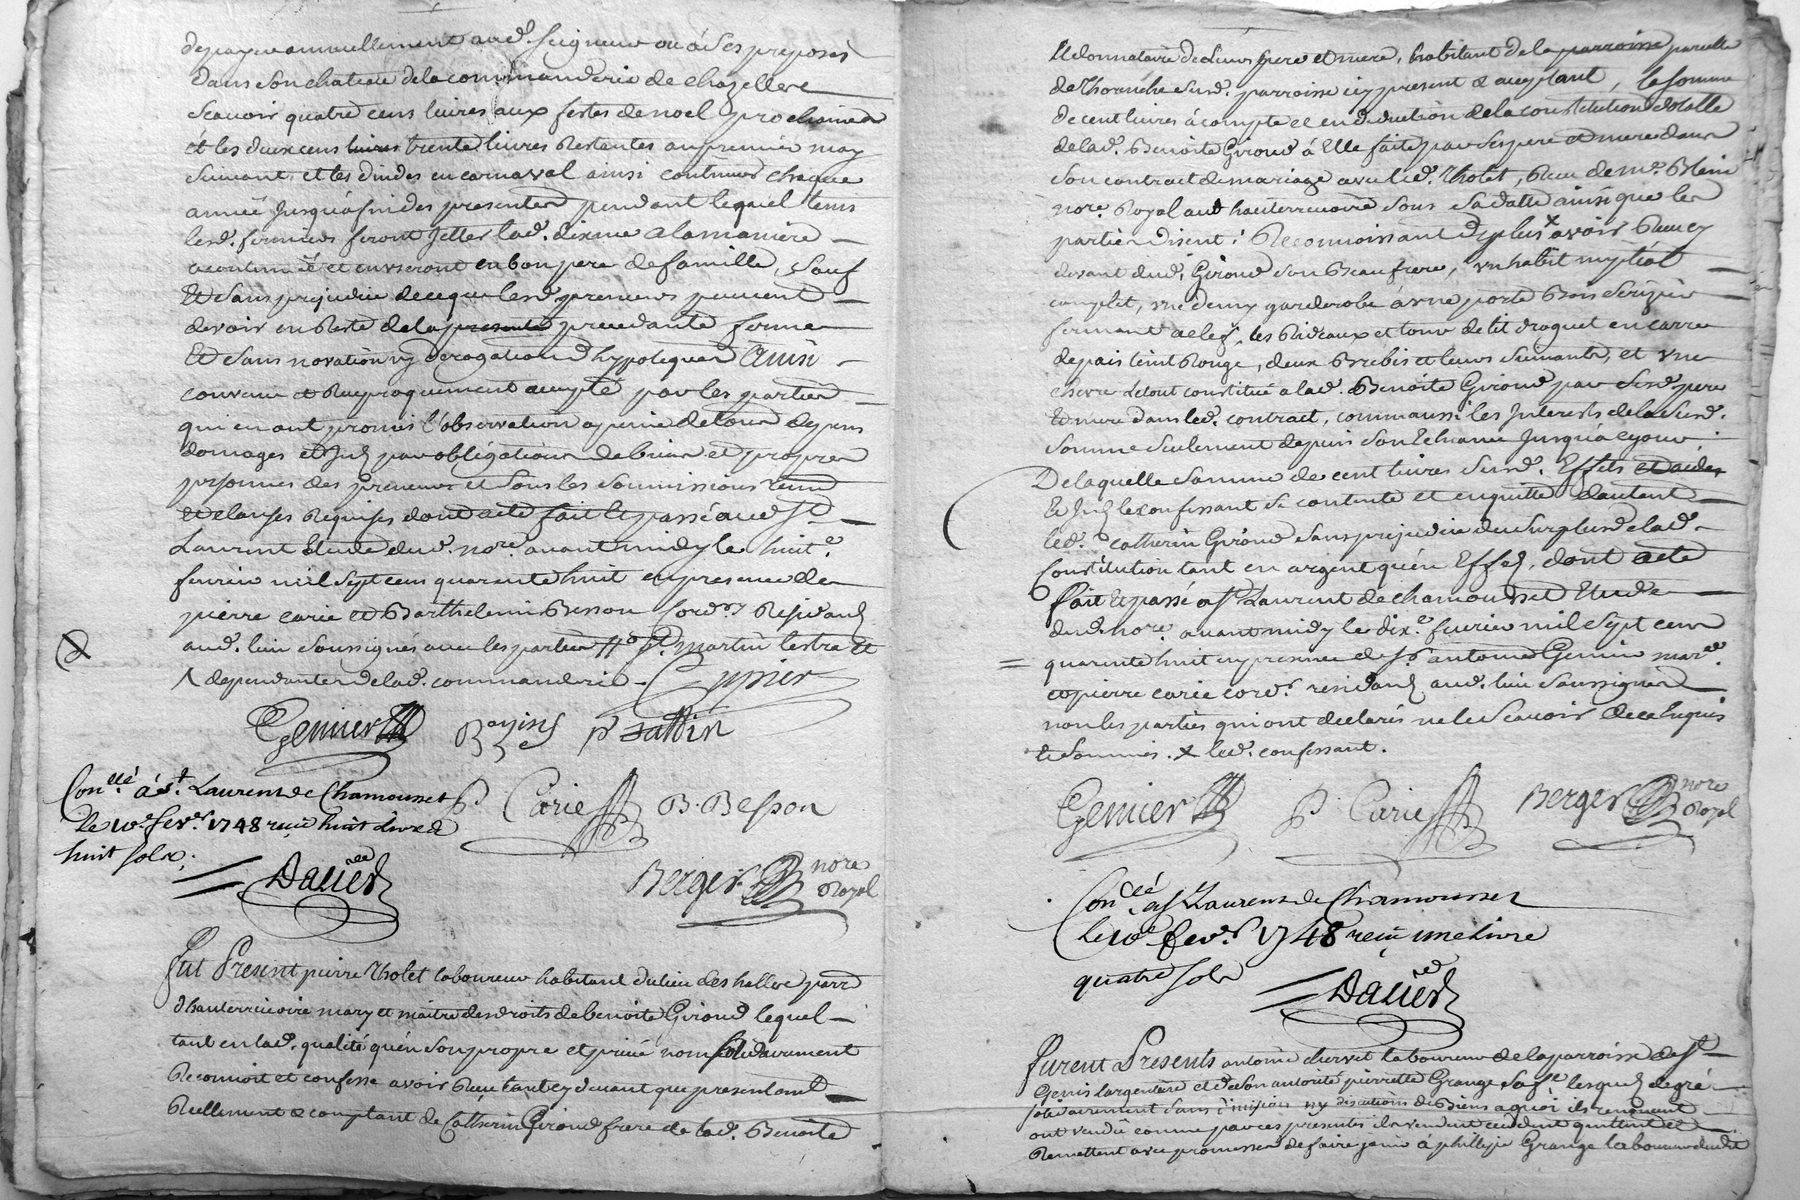 de payer annuellement aud. seigneur ou à ses preposés
dans son chateau de la commanderie de Chazelles
Scauoir quatre cens liures aux festes de noel prochaines
et les deux cens liures trente liures Restantes au premier may
suiuant, et les dindes en carnaval ainsi continuer chaque
année jusqu'à fin des presentes pendant lequel tems
lesd. fermiers feront jetter lad. dixme a la maniere
acoutumée et en vseront en bon pere de famille, Sauf
Et sans prejudice de ce que lesd. preneurs peuvent
devoir en Reste de la presente precedante ferme
Et sans novation ny derogation d'hypoteques Ainsi
convenu et Reciproquement accepté par les parties
qui en ont promis l'observation a peine de tous depens
domages et Int. par obligation de biens et propres
personnes des preneurs et sous les soumissions renon
et clauses Requises dont acte fait et passé aud. St
Laurent Etude dud. nore. avant midy le huit.e
feurier mil sept cens quarante huit en presence de
pierre carie et Barthelemi Besson cord.rs Residants
aud. lieu soussignés avec les parties St. martin lestra et
dependantes de lad. commanderie
Genier
P. Carie B. Besson
Con.llé à St. Laurens de Chamousset
le 10e fevr. 1748 reçu huit livres
huit sols.
Berger nore Royal
Fut Present pierre Tholet laboureur habitant du lieu des halles parr.
d'hauterivoire mary et maitre des droits de benoite Giroud lequel
tant en lad. qualité qu'en son propre et privé nom solidairement
Reconnoit et confesse avoir Reçu tant cy devant que presentement
Reellement et comptant de Catherin Giroud frere de lad. Benoite
Et donnataire de Leurs pere et mere, habitant de la parroisse
susd. parroisse icy present et acceptant, la somme
de cent liures à compte et en deduction de la constitution dotalle
de lad. Benoite Giroud à Elle faite par ses pere et mere dans
son contract de mariage avec led. Tholet, Reçu de Me.
nore. Royal aud hauterivoire sous Sa datte ainsi que les
parties disent; Reconnoissant de plus x avoir Reçu cy
devant dud. Giroud son Beaufrere, vn habit nuptial
complet, vne demy garderobe à vne porte Bois Serizier
fermant à clef, les Rideaux et tour de lit droguet en carre
de pais teint Rouge, deux Brebis et leurs suiuants, et vne
chevre le tout constitué a lad. Benoite Giroud par sesd. pere
Et mere dans led. contract, comm'aussi les Interests de la susd.
somme seulement depuis son Echeance jusqu'à ce jour
De laquelle somme de cent liures susd. Effets
Et Int. le confessant se contente et en quitte d'autant
led. Catherin Giroud sans prejudice du surplus de lad.
Constitution tant en argent qu'en Effets, dont acte
fait et passé a St. Laurent de chamousset Etude
dud. nore. avant midy le dix.e feurier mil sept cens
quarante huit en presence de Sr. antoine Genier mar.d
et pierre carie cord.r residants aud. lieu soussignés
non les parties qui ont declarés ne le scauoir de ce Enquis
et sommés. x led. confessant.
Genier P. Carie Berger nore Royal
Con.llé a St Laurens de Chamousset
le 10e fevr. 1748 reçu une livre
quatre sols
Furent Presents antoine laboureur de la parroisse de St.
Genis l'argentiere et de son autorité pierrette Grange sa fe. lesquels de gré
solidairement sans division ny discution de Biens a quoi ils renoncent
ont vendu comme par ces presentes ils vendent cedent quittent et
Remettent avec promesse de faire jouir à phillipe Grange laboureur dudit